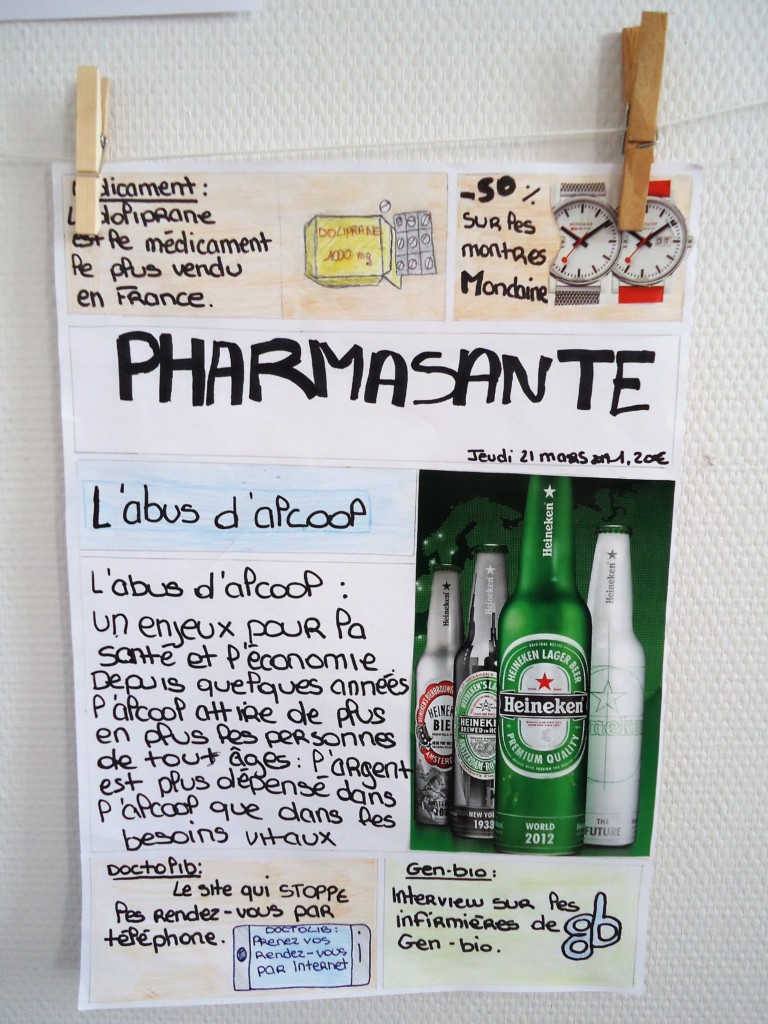 dicament :
doliprane
est le médicament
le plus vendu
en France.
DOLIPRANE
1000 mg
-50 %
sur les
montres
Mondaine
PHARMASANTE
Jeudi 21 mars 1,20€
L'abus d'alcool
L'abus d'alcool :
un enjeux pour la
santé et l'économie
Depuis quelques années
l'alcool attire de plus
en plus les personnes
de tout âges : l'argent
est plus dépensé dans
l'alcool que dans les
besoins vitaux
Heineken
Heineken
Heineken
Heineken
HEINEKEN LAGER BEER
Heineken
PREMIUM QUALITY
NEW YORK
1933
WORLD
2012
THE
FUTURE
Doctolib:
Le site qui STOPPE
les rendez-vous par
téléphone.
DOCTOLIB:
Prenez vos
Rendez-vous
par Internet
Gen-bio :
Interview sur les
infirmières de
Gen-bio.
gb